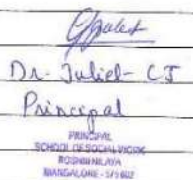 Dr. Juliet CJ
Principal
PRINCIPAL
SCHOOL OF SOCIAL WORK
ROSHNI NILAYA
MANGALORE - 575 002